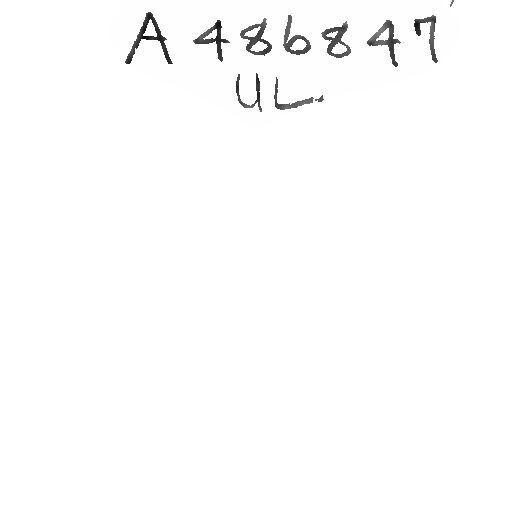 A 486847
UL